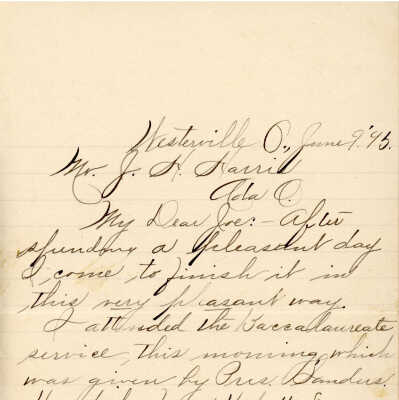 Westerville O., June 9. '95.
Mr. J. H. Harris
Ada O.
My Dear Joe:- After
spending a pleasant day
I come to finish it in
this very pleasant way.
I attended the Baccalaureate
service, this morning, which
was given by Pres. Sanders.